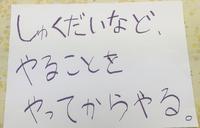 しゅくだいなど、
やることを
やってからやる。